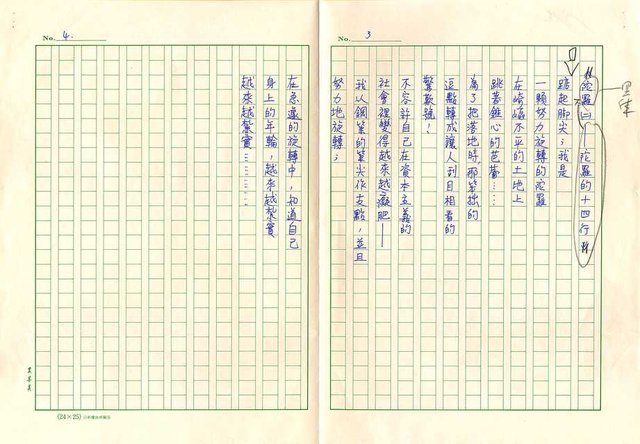 No. 3
陀螺
——陀螺的十四行
黑体
踮起腳尖;我是
一顆努力旋轉的陀螺
在崎嶇不平的土地上
跳著錐心的芭蕾……
為了把落地時那笨拙的
逗點轉成讓人刮目相看的
驚歎號!
不容許自己在資本主義的
社會裡變得越來越癡肥——
我以鋼筆的筆尖作支點,並且
努力地旋轉;
No. 4.
在急遽的旋轉中,知道自己
身上的年輪,越來越紮實
越來越紮實………
(24×25)